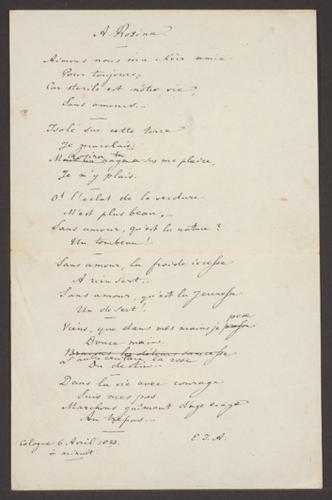 A Rosina
Aimons nous ma chère amie
Pour toujours,
Car sterile est nôtre vie,
Sans amours.
Isolé sur cette terre
Je marchais
Rosina tu
sus me plaire,
Je m'y plais.
Et l'éclat de la verdure
M'est plus beau,
Sans amour, qu'est la nature?
Un tombeau!
Sans amour, la froide
A rien sert.
Sans amour, qu'est la jeunesse
Un desert!
Viens, que dans mes mains je
Douce main
la rose
Du destin.
Dans la vie avec courage
Suis mes pas
Marchons
Au trépas.
Cologne 6 Avril
E. J. A.
à minuit